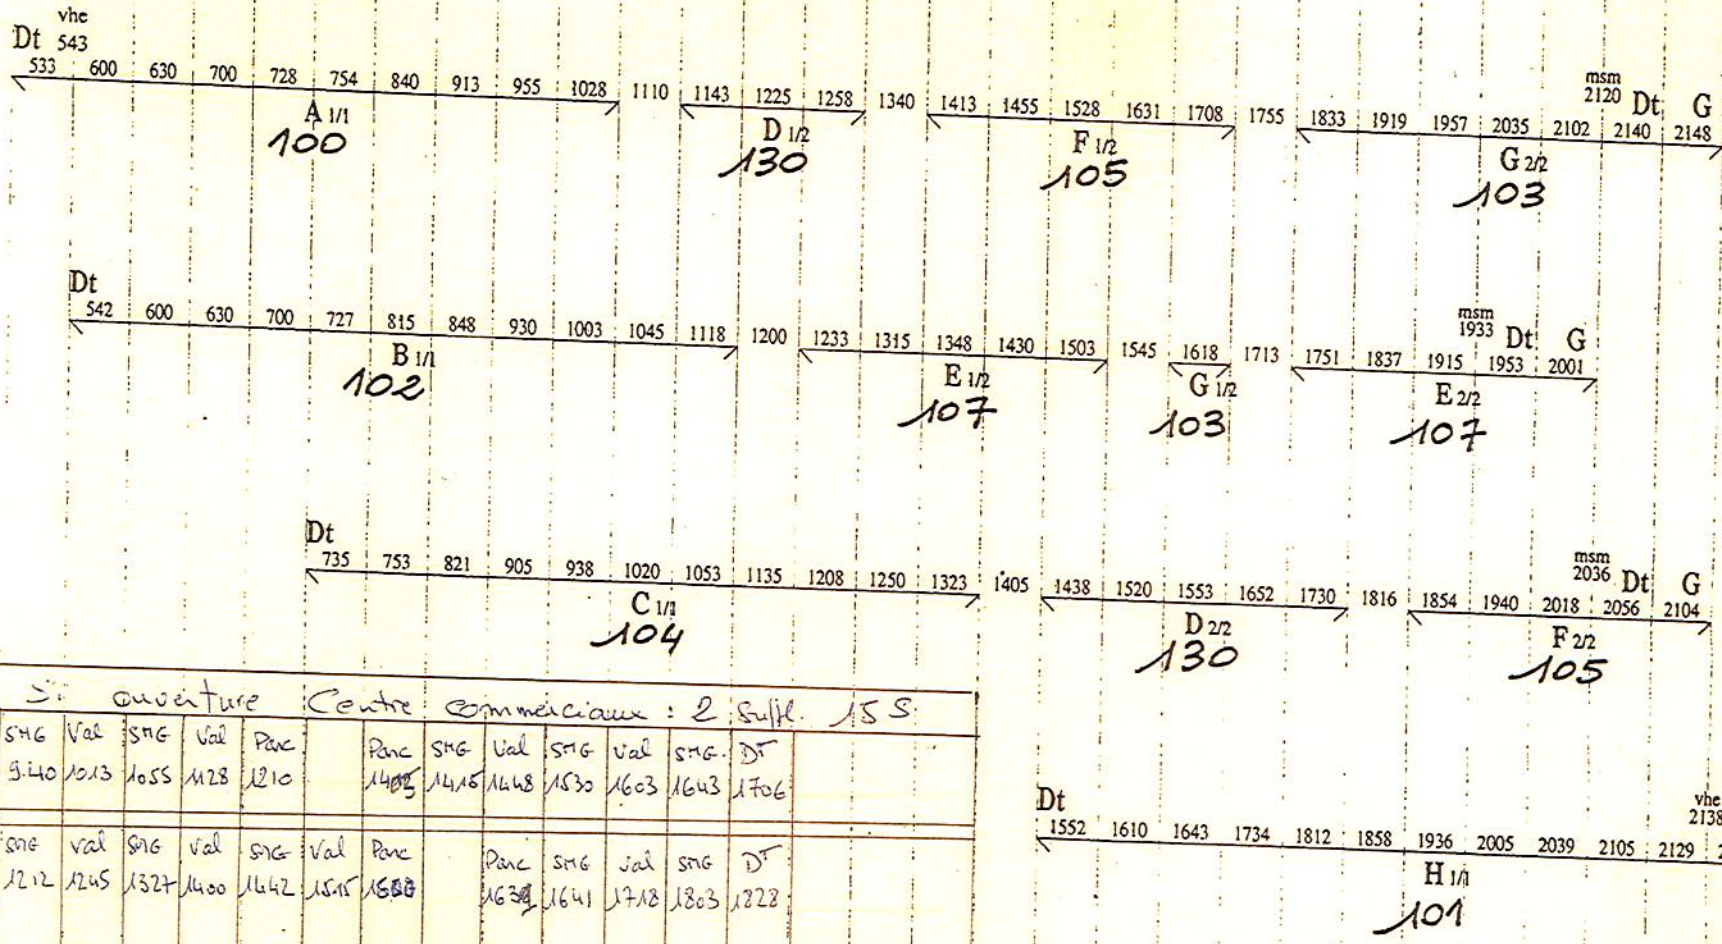 vhe
Dt 543
533 600 630 700 728 754 840 913 955 1028 1110 1143 1225 1258 1340 1413 1455 1528 1631 1708 1755 1833 1919 1957 2035 2102 2140 2148
msm
2120 Dt G
A 1/1 D 1/2 F 1/2 G 2/2
100 130 105 103
Dt
542 600 630 700 727 815 848 930 1003 1045 1118 1200 1233 1315 1348 1430 1503 1545 1618 1713 1751 1837 1915 1953 2001
msm
1933 Dt G
B 1/1 E 1/2 G 1/2 E 2/2
102 107 103 107
Dt
735 753 821 905 938 1020 1053 1135 1208 1250 1323 1405 1438 1520 1553 1652 1730 1816 1854 1940 2018 2056 2104
msm
2036 Dt G
C 1/1 D 2/2 F 2/2
104 130 105
Si ouverture Centre commerciaux : 2 Suppl. 15 S
SMG Val SMG Val Parc Parc SMG Val SMG Val SMG. DT
9.40 1013 1055 1128 1210 1415 1448 1530 1603 1643 1706
SMG Val SMG Val SMG Val Parc Parc SMG Val SMG DT
1212 1245 1327 1400 1442 1515 1641 1718 1803 1828
Dt
1552 1610 1643 1734 1812 1858 1936 2005 2039 2105 2129
vhe
2138
H 1/1
101